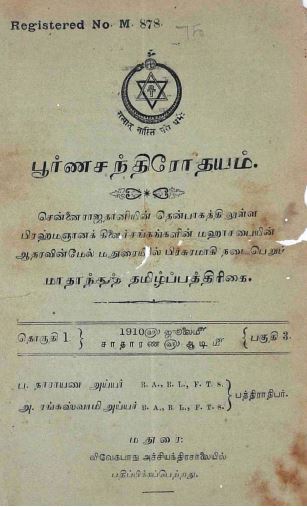 Registered No M 878.
सत्यात् नास्ति परो धर्मः
பூர்ணசந்திரோதயம்.
சென்னைராஜதானியின் தென்பாகத்திலுள்ள
பிரஹ்மஞானக் கிளைச்சங்கங்களின் மஹாசபையின்
ஆதரவின்மேல் மதுரையில் பிரசுரமாகி நடைபெறும்
மாதாந்தத் தமிழ்ப்பத்திரிகை.
தொகுதி 1 } 1910௵ ஜூலை௴ { பகுதி 3.
சாதாரண௵ ஆடி௴
ப. நாராயண அய்யர் B. A., B. L., F. T. S. } பத்திராதிபர்.
அ. ரங்கஸ்வாமி அய்யர் B. A., B. L., F. T. S.
மதுரை:
விவேகபாநு அச்சியந்திரசாலையில்
பதிப்பிக்கப்பெற்றது.